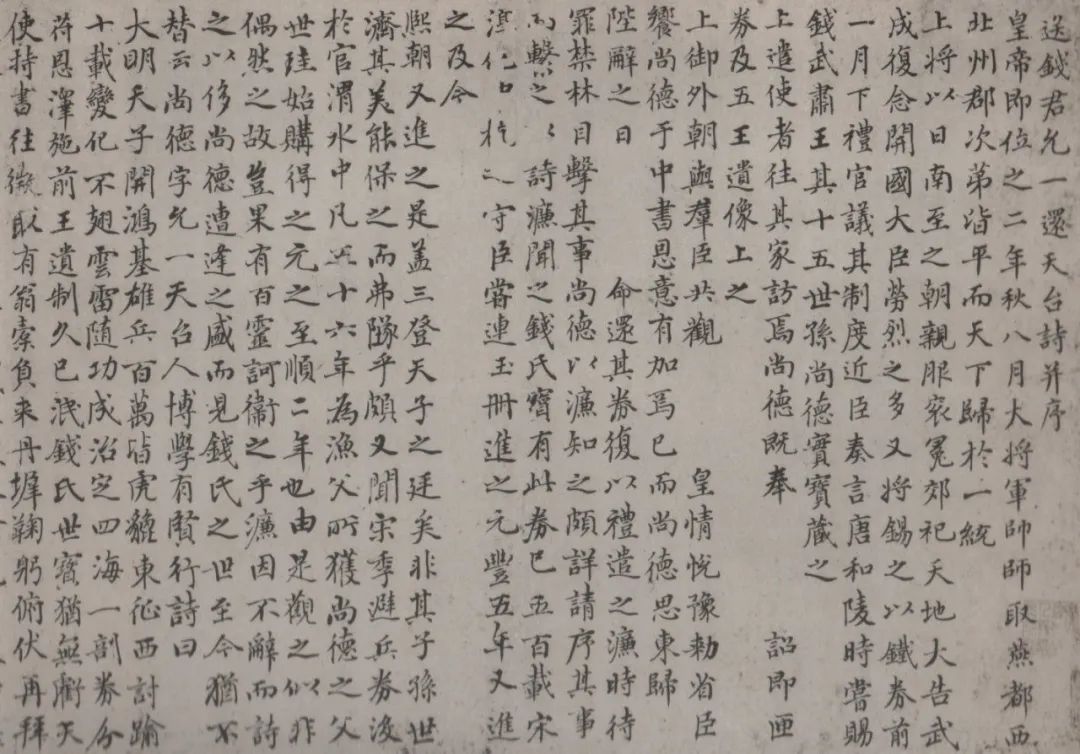 送錢君允一還天台詩并序
皇帝即位之二年秋八月大將軍師師取燕都西
北州郡次第皆平而天下歸於一統
上將以日南至之朝親服袞冕郊祀天地大告武
成復念開國大臣勞烈之多又將錫之以鐵券前
一月下禮官議其制度近臣奏言唐和陵時嘗賜
錢武肅王其十五世孫尚德實寶藏之
上遣使者往其家訪焉尚德既奉 詔即匣
券及五王遺像上之
上御外朝與羣臣共觀 皇情悅豫勅省臣
饗尚德于中書恩意有加焉已而尚德思東歸
陛辭之日 命還其券復以禮遣之濂時待
罪禁林目擊其事尚德以濂知之頗詳請序其事
而繫以之詩濂聞之錢氏寶有此券已五百載宋
淳化中杭之守臣嘗連玉冊進之元豐五年又進
之及今
熙朝又進之是蓋三登天子之廷矣非其子孫世
濟其美能保之而弗隊乎頗又聞宋季避兵券沒
於官渭水中凡五十六年為漁父所獲尚德之父
世珪始購得之元之至順二年也由是觀之似非
偶然之故豈果有百靈訶衛之乎濂因不辭而詩
之以侈尚德遭逢之盛而見錢氏之世至今猶不
替云尚德字允一天台人博學有賢行詩曰
大明天子開鴻基雄兵百萬皆虎貔東征西討踰
十載變化不翅雲雷隨功成治定四海一剖券分
符恩澤施前王遺制久已泯錢氏世寶猶無虧天
使持書往徵取有翁橐負來丹墀鞠躬俯伏再拜